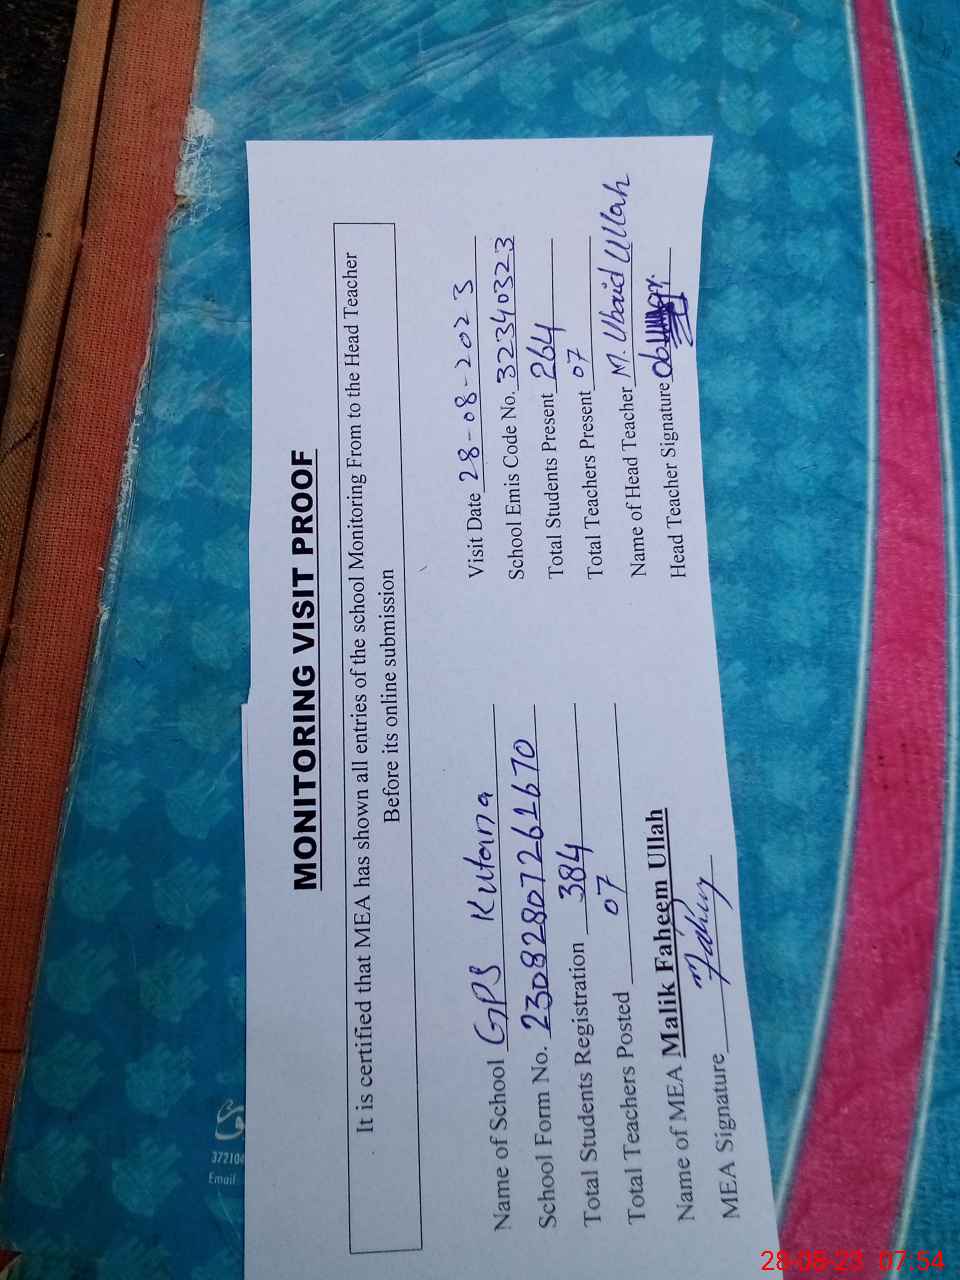 MONITORING VISIT PROOF
It is certified that MEA has shown all entries of the school Monitoring From to the Head Teacher
Before its online submission
Name of School GPS Kutana
School Form No. 23082807261670
Total Students Registration 384
Total Teachers Posted 07
Name of MEA Malik Faheem Ullah
MEA Signature Fahim
Visit Date 28-08-2023
School Emis Code No. 32340323
Total Students Present 264
Total Teachers Present 07
Name of Head Teacher M. Ubaid Ullah
Head Teacher Signature
372104
Email
28-08-23 07:54